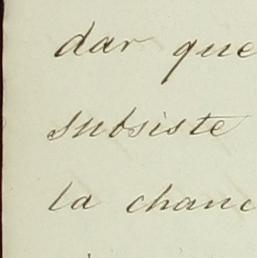 dar que
subsiste
la chanc